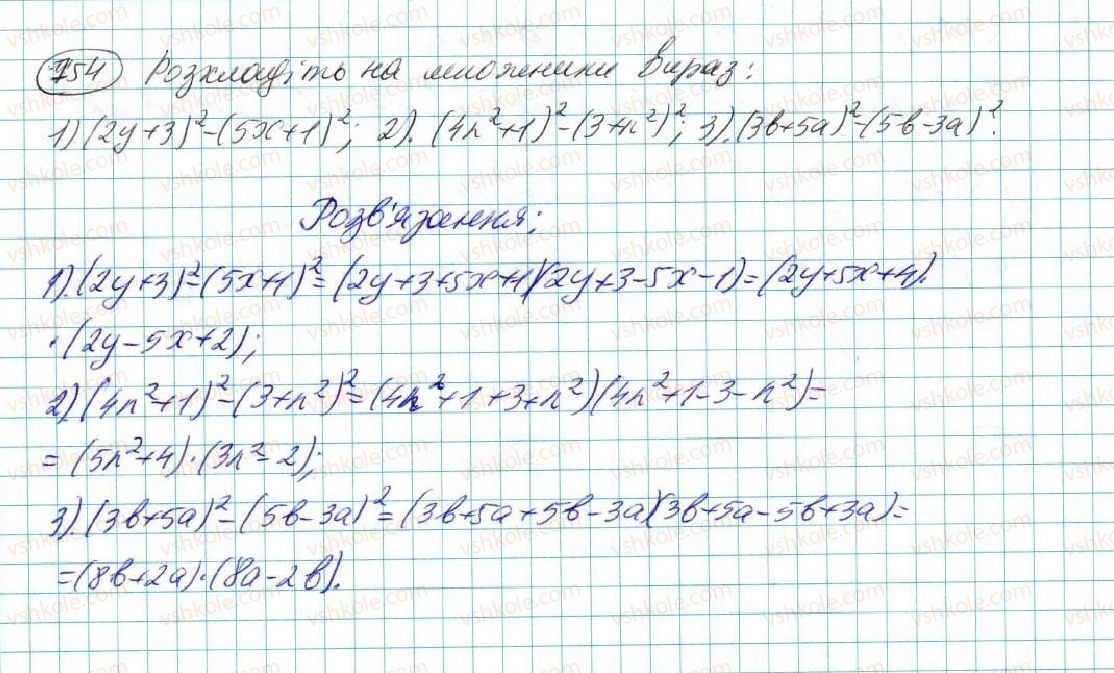 754 Розкладіть на множники вираз:
1) (2y+3)²-(5x+1)²; 2). (4n²+1)²-(3+n²)²; 3). (3b+5a)²-(5b-3a)².
Розв'язання:
1). (2y+3)²-(5x+1)²=(2y+3+5x+1)(2y+3-5x-1)=(2y+5x+4)·
·(2y-5x+2);
2) (4n²+1)²-(3+n²)²=(4n²+1+3+n²)(4n²+1-3-n²)=
=(5n²+4)·(3n²-2);
3). (3b+5a)²-(5b-3a)²=(3b+5a+5b-3a)(3b+5a-5b+3a)=
=(8b+2a)·(8a-2b).